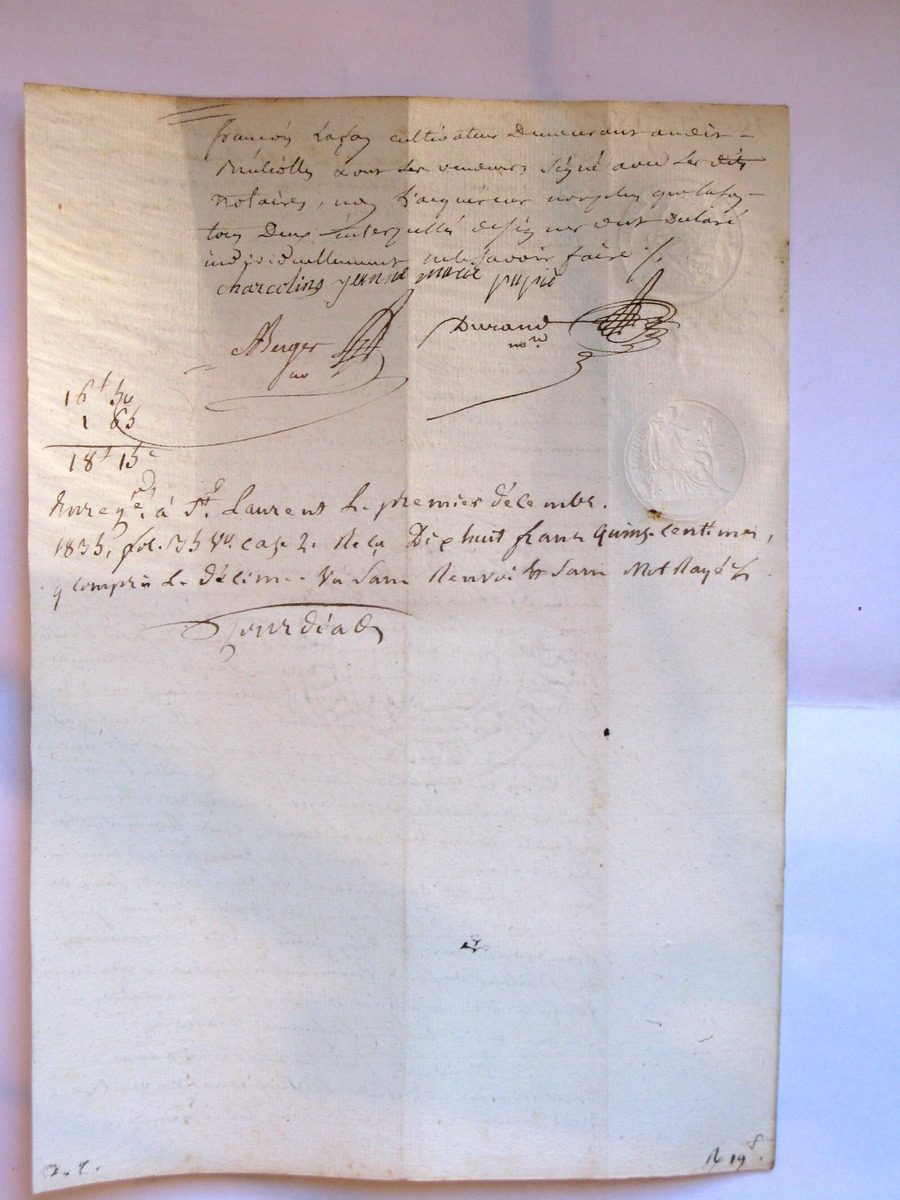 françois Lafay cultivateur Demeurant audit
dont les vendeurs Signé avec les dits
notaires, non l'acquéreur non plus que Lafay
tous Deux interpellés de signer ont Déclaré
individuellement ne le savoir faire ./.
charcelins jeanne marie papié
ABerger
no
Durand
nore
16f 50
1 65
18f 15c
Enregé. à St. Laurent Le premier décembre
1835, fol. 35 Vo. case 2. Reçu Dix huit francs Quinze centimes,
y compris Le décime. Un Sans Renvoi & Sans Mot Rayé
D. C.